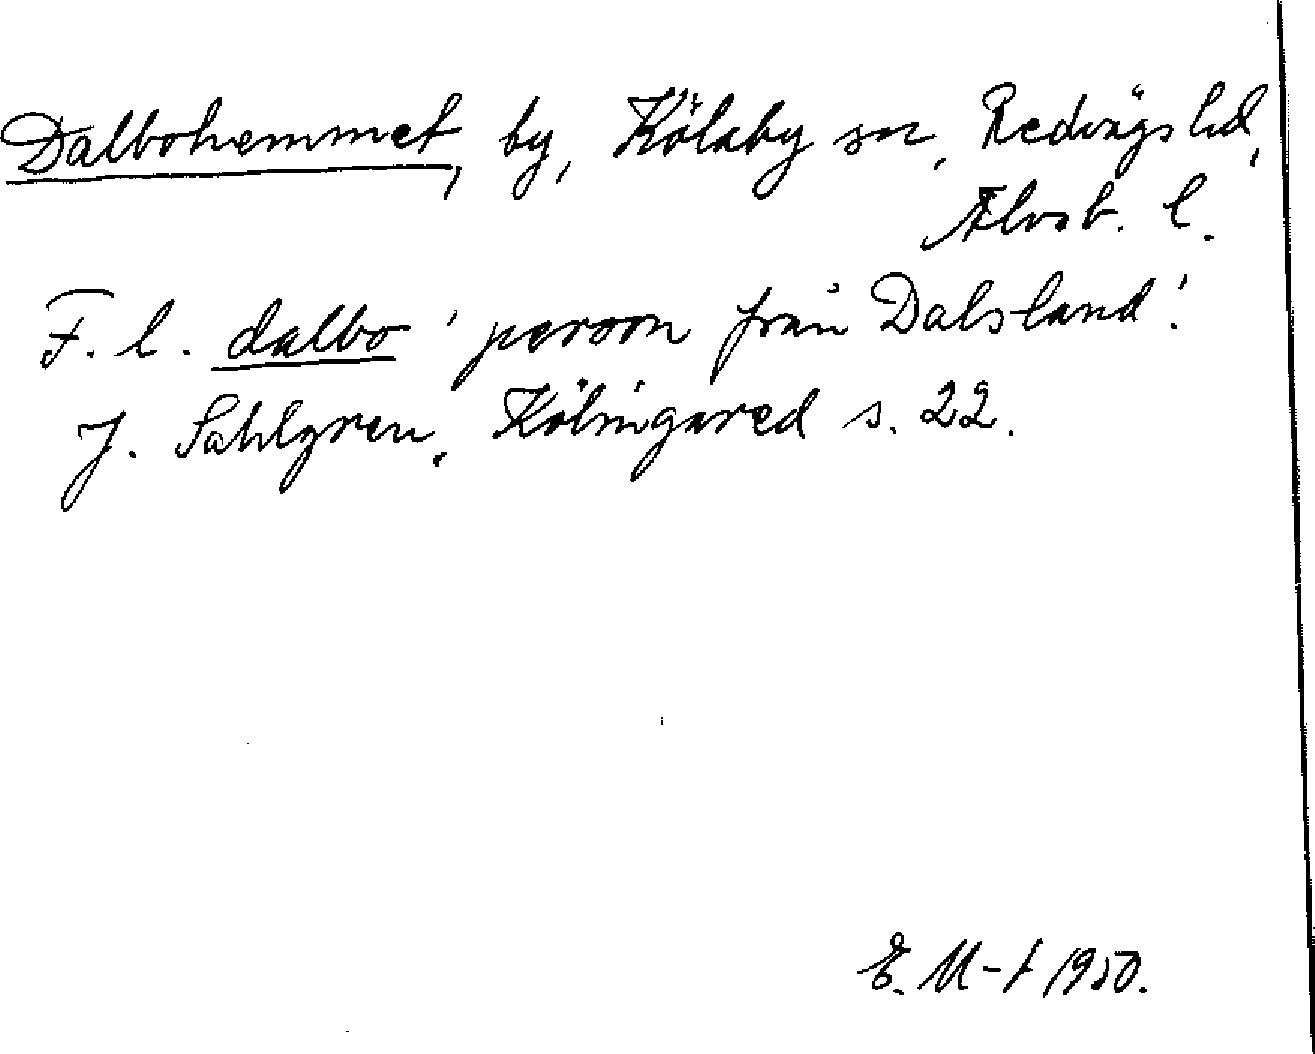 Dalbohemmet, by, Kölaby sn, Redvägs hd,
Älvsb. l.
F. l. dalbo 'person från Dalsland'.
J. Sahlgren, Kölingared s. 22.
E. M-t 1950.